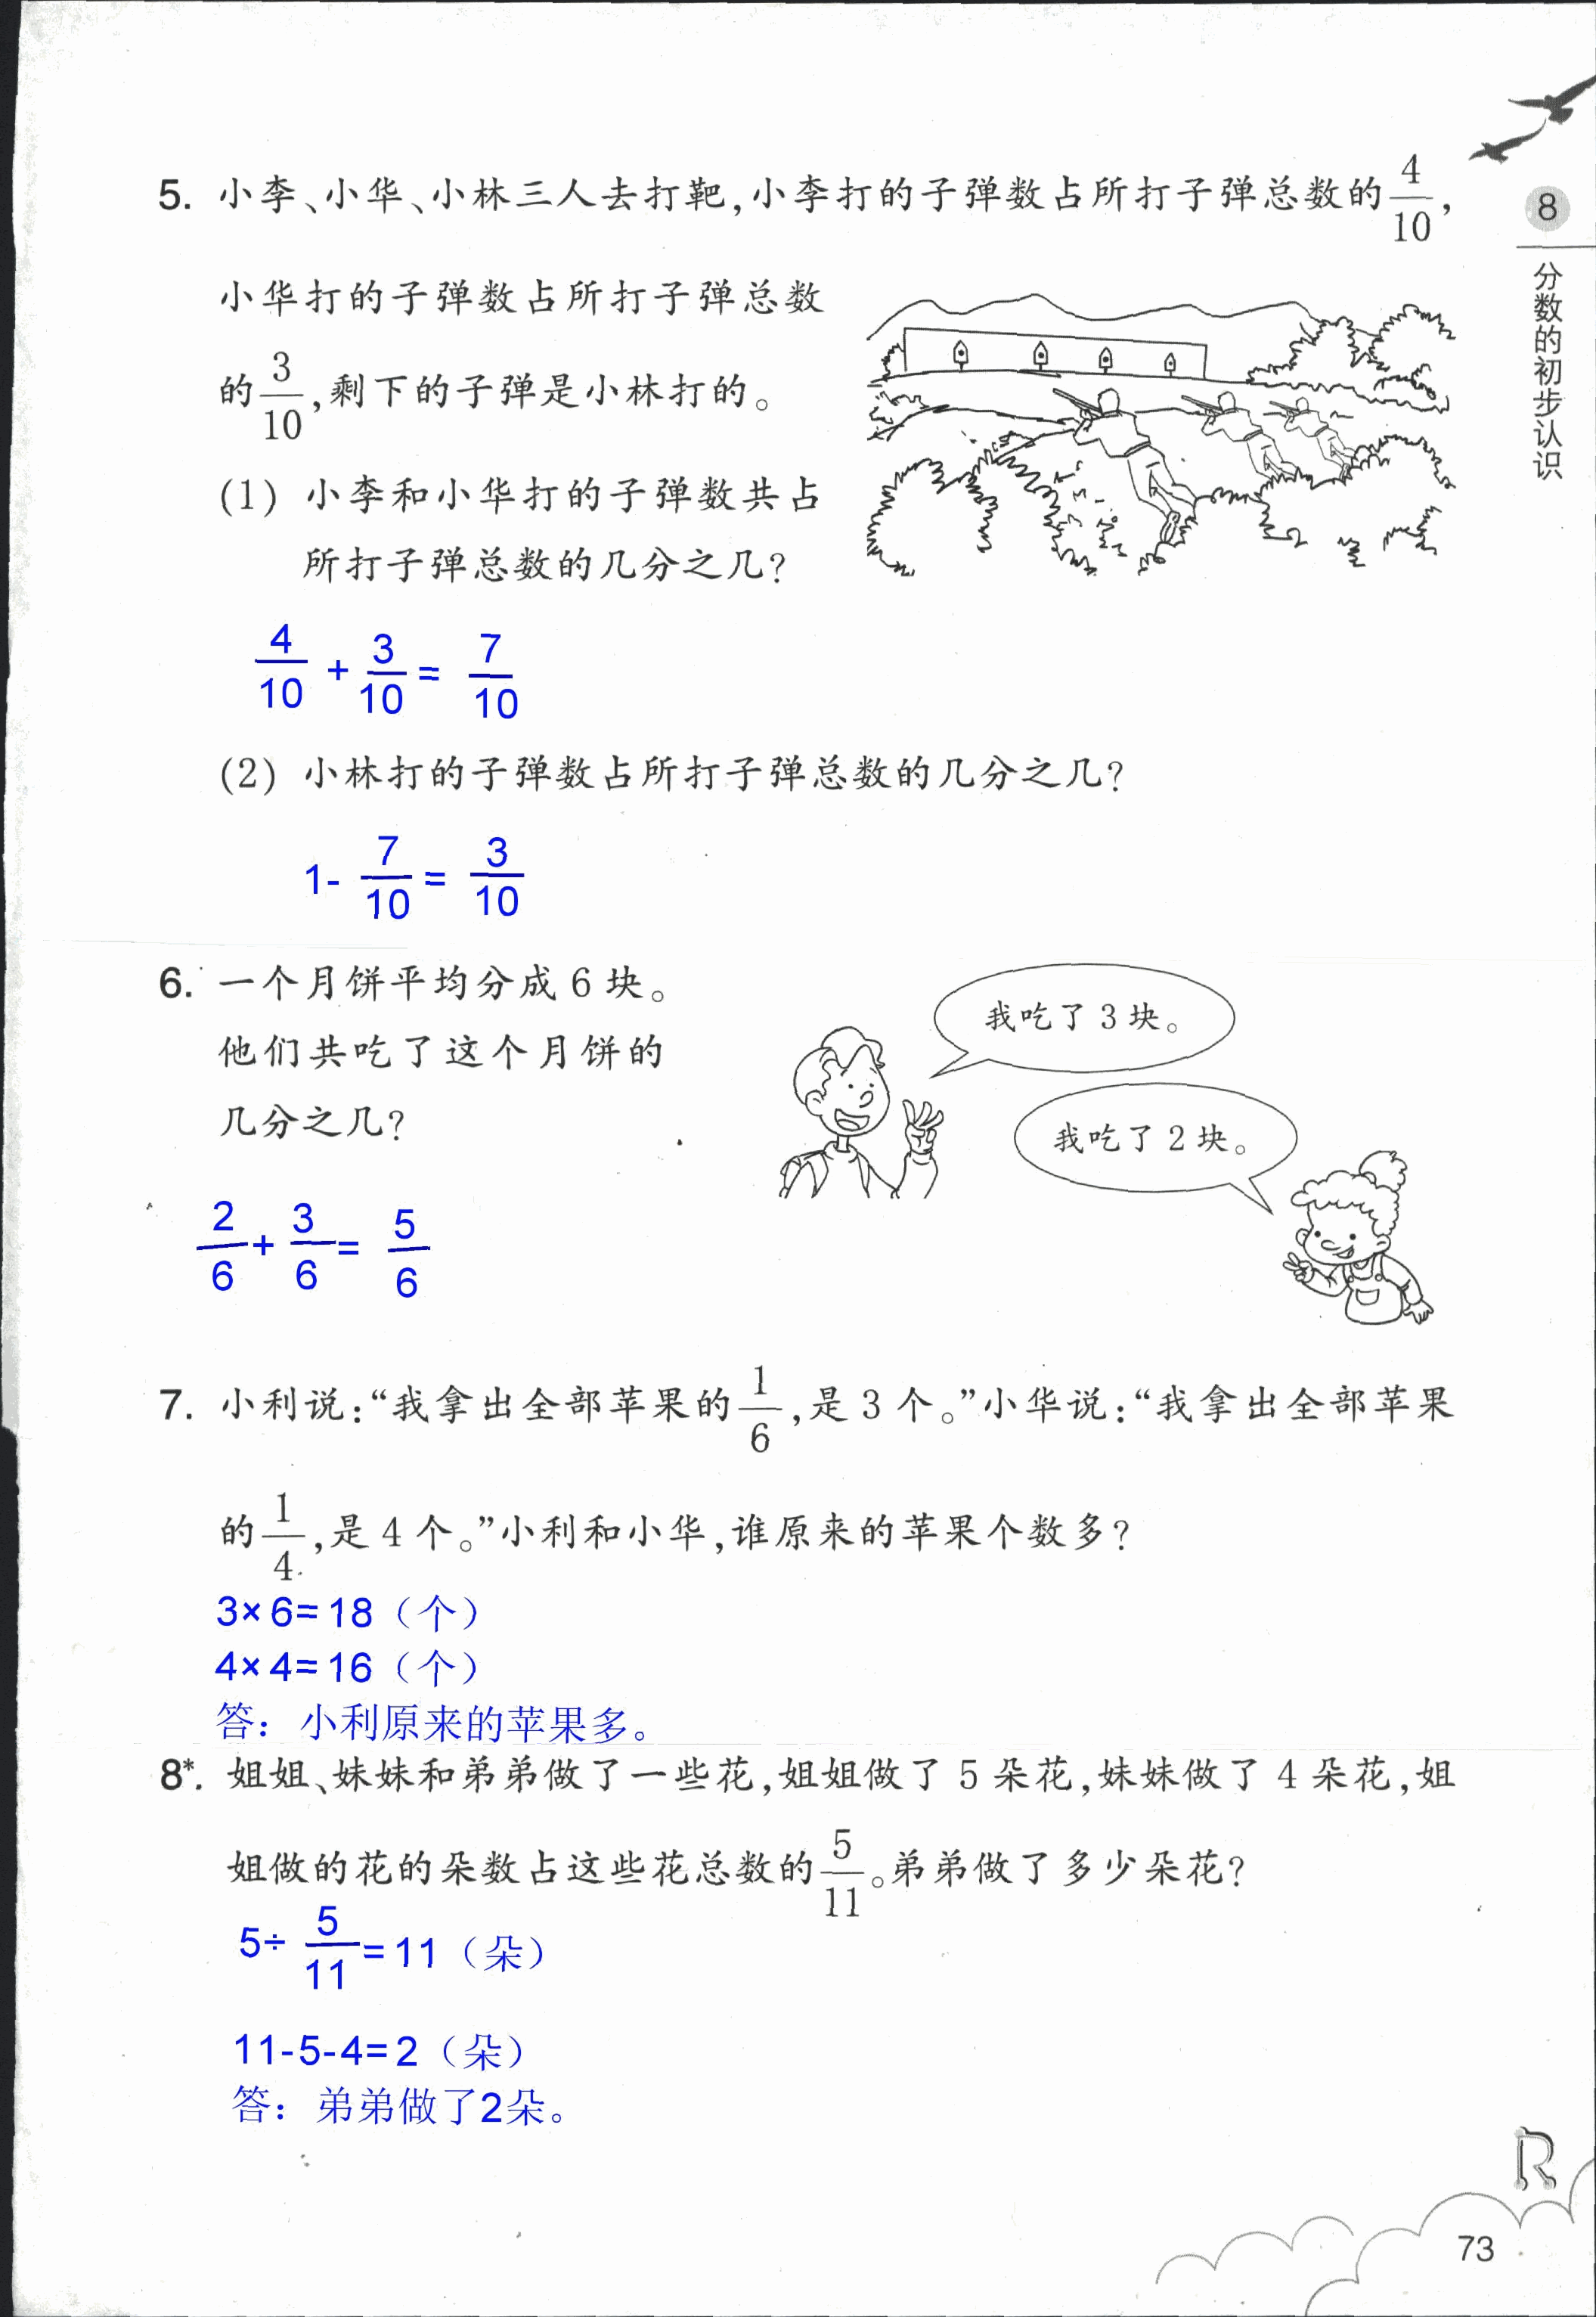 5. 小李、小华、小林三人去打靶,小李打的子弹数占所打子弹总数的4/10,
小华打的子弹数占所打子弹总数
的3/10,剩下的子弹是小林打的。
(1) 小李和小华打的子弹数共占
所打子弹总数的几分之几?
4/10 + 3/10 = 7/10
(2) 小林打的子弹数占所打子弹总数的几分之几?
1- 7/10 = 3/10
6. 一个月饼平均分成 6 块。
他们共吃了这个月饼的
几分之几?
我吃了 3 块。
我吃了 2 块。
2/6 + 3/6 = 5/6
7. 小利说:“我拿出全部苹果的1/6,是 3 个。”小华说:“我拿出全部苹果
的1/4,是 4 个。”小利和小华,谁原来的苹果个数多?
3×6=18（个）
4×4=16（个）
答：小利原来的苹果多。
8*. 姐姐、妹妹和弟弟做了一些花,姐姐做了 5 朵花,妹妹做了 4 朵花,姐
姐做的花的朵数占这些花总数的5/11。弟弟做了多少朵花?
5÷ 5/11 =11（朵）
11-5-4=2（朵）
答：弟弟做了2朵。
8
分数的初步认识
R
73